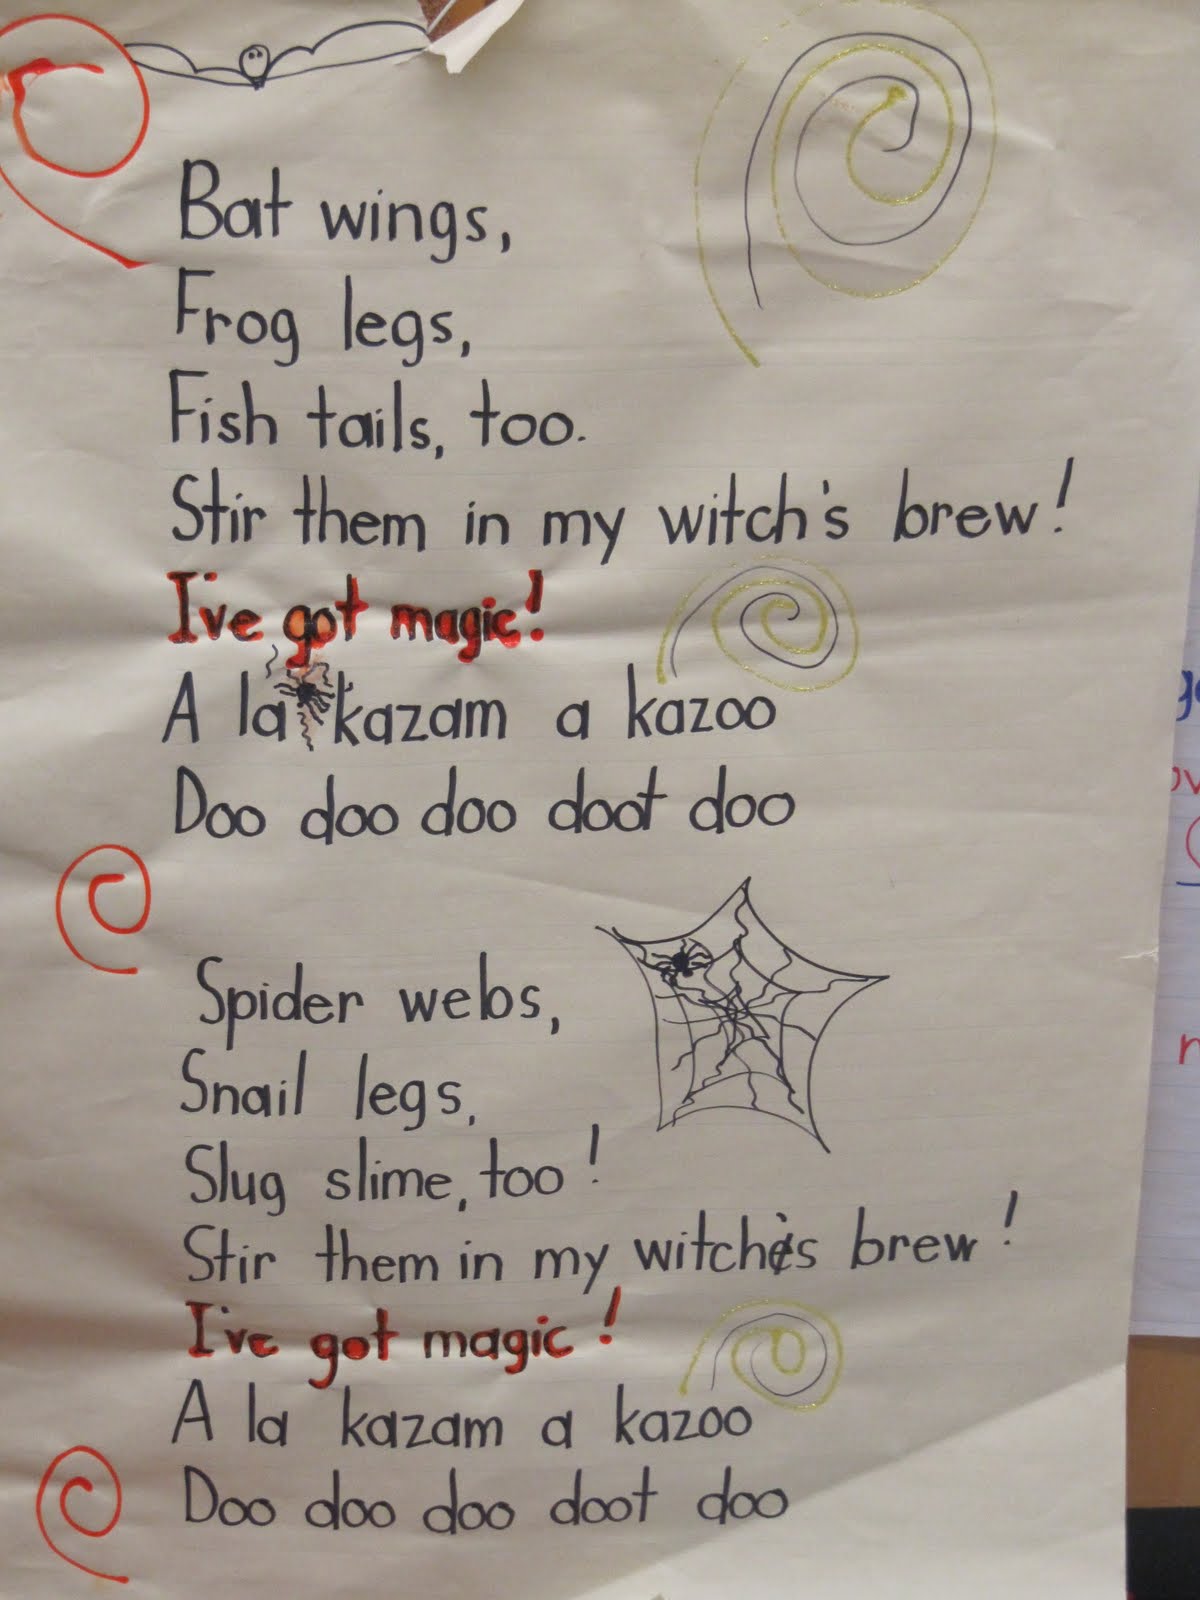 Bat wings,
Frog legs,
Fish tails, too.
Stir them in my witch's brew!
I've got magic!
A la kazam a kazoo
Doo doo doo doot doo
Spider webs,
Snail legs,
Slug slime, too!
Stir them in my witch's brew!
I've got magic!
A la kazam a kazoo
Doo doo doo doot doo